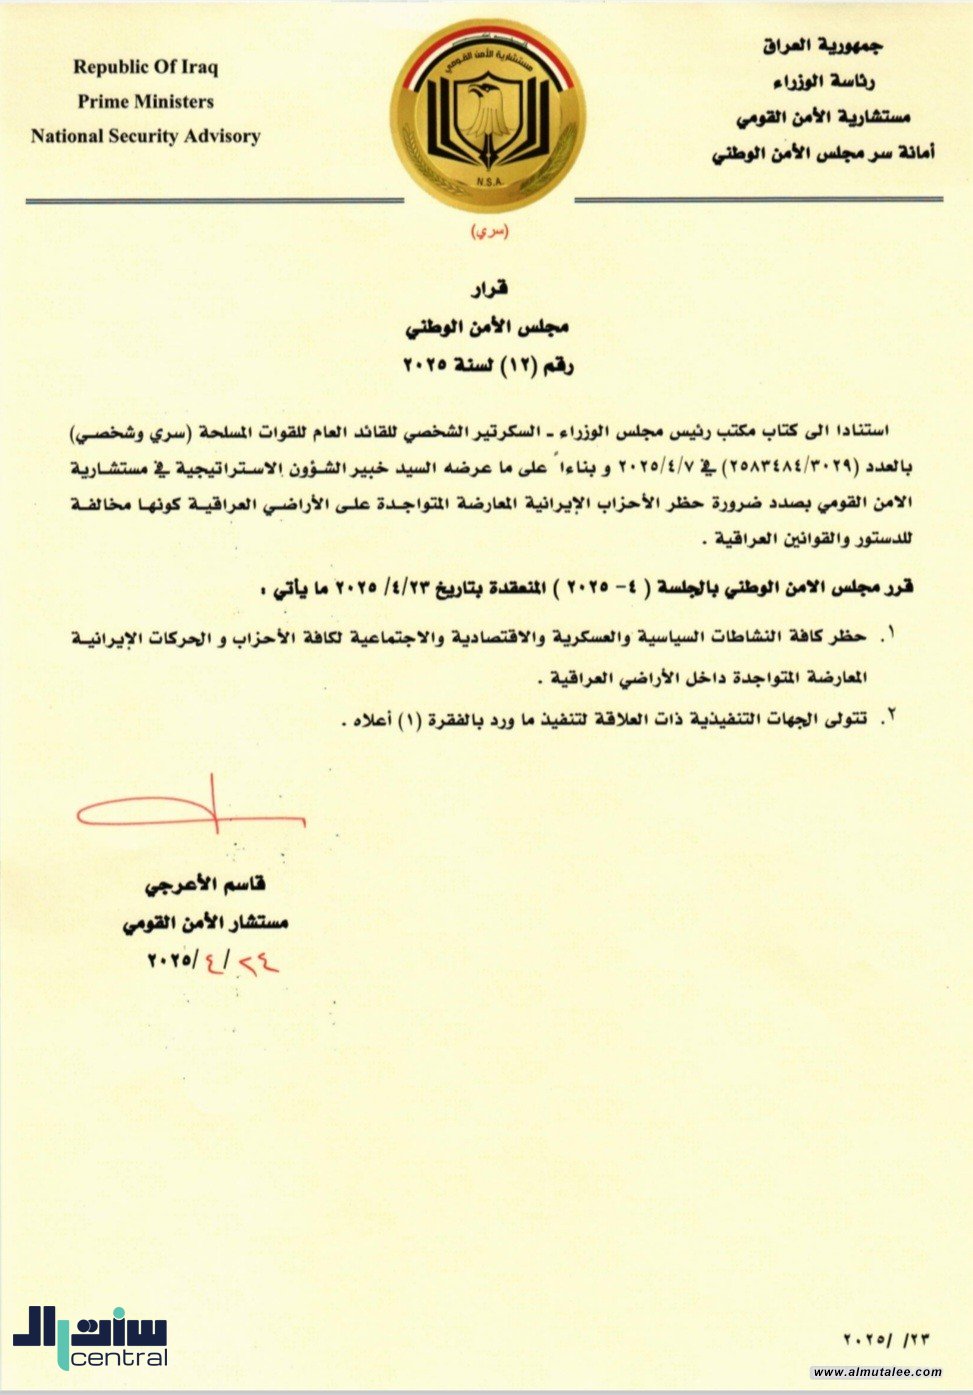 جمهورية العراق
رئاسة الوزراء
مستشارية الأمن القومي
أمانة سر مجلس الأمن الوطني
Republic Of Iraq
Prime Ministers
National Security Advisory
مستشارية الأمن القومي
N.S.A.
(سري)
قرار
مجلس الأمن الوطني
رقم (١٢) لسنة ٢٠٢٥
استنادا الى كتاب مكتب رئيس مجلس الوزراء ـ السكرتير الشخصي للقائد العام للقوات المسلحة (سري وشخصي)
بالعدد (٢٥٨٣٤٨٤/٣٠٢٩) في ٢٠٢٥/٤/٧ و بناءاً على ما عرضه السيد خبير الشؤون الاستراتيجية في مستشارية
الامن القومي بصدد ضرورة حظر الأحزاب الإيرانية المعارضة المتواجدة على الأراضي العراقية كونها مخالفة
للدستور والقوانين العراقية .
قرر مجلس الامن الوطني بالجلسة ( ٤- ٢٠٢٥ ) المنعقدة بتاريخ ٢٣/٤/ ٢٠٢٥ ما يأتي :
١. حظر كافة النشاطات السياسية والعسكرية والاقتصادية والاجتماعية لكافة الأحزاب و الحركات الإيرانية
المعارضة المتواجدة داخل الأراضي العراقية .
٢. تتولى الجهات التنفيذية ذات العلاقة لتنفيذ ما ورد بالفقرة (١) أعلاه .
قاسم الأعرجي
مستشار الأمن القومي
٢٤/٤/٢٠٢٥
سنترال
central
٢٣/ /٢٠٢٥
www.almutalee.com